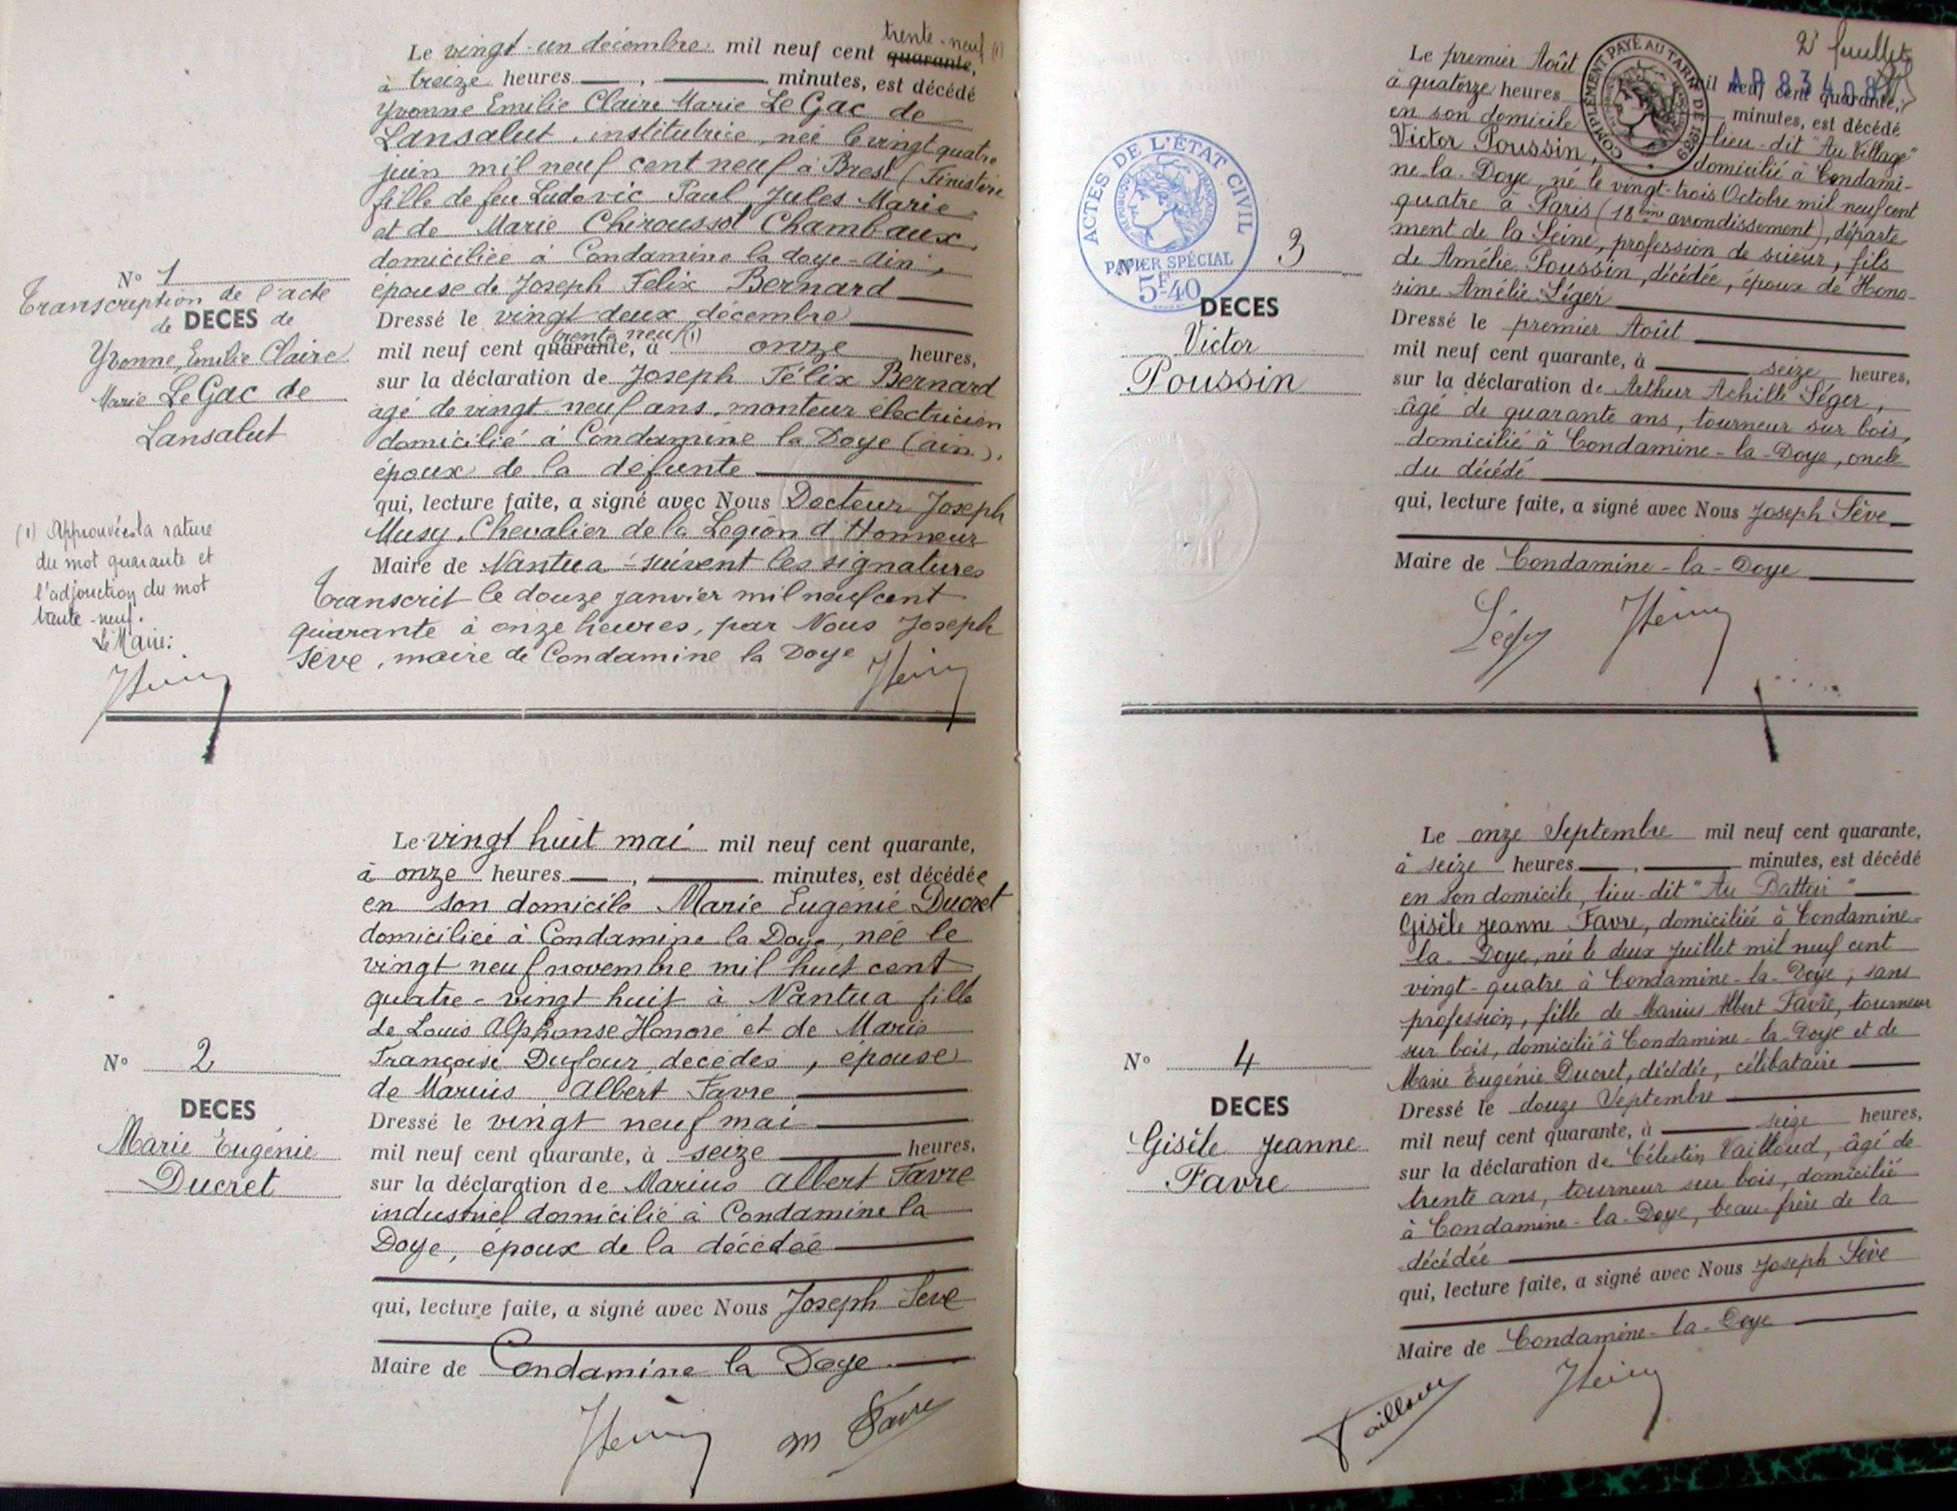 Le vingt-un décembre mil neuf cent quarante, trente-neuf (1)
à treize heures , minutes, est décédé
Yvonne Emilie Claire Marie Le Gac de
Lansalut, institutrice, née le vingt quatre
juin mil neuf cent neuf à Brest (Finistère
fille de feu Ludovic Paul Jules Marie
et de Marie Chiroussot Chambeaux
domiciliée à Condamine la doye-ain,
épouse de Joseph Felix Bernard
Dressé le vingt deux décembre
mil neuf cent quarante, trente neuf (1) à onze heures,
sur la déclaration de Joseph Félix Bernard
agé de vingt neuf ans, monteur électricien
domicilié à Condamine la Doye (ain),
époux de la défunte
qui, lecture faite, a signé avec Nous Docteur Joseph
Musy, Chevalier de la Légion d'Honneur
Maire de Nantua - suivent les signatures
Transcrit le douze janvier mil neuf cent
quarante à onze heures, par Nous Joseph
Sève, maire de Condamine la Doye
N° 1
Transcription de l'acte
de DECES de
Yvonne, Emilie Claire
Marie Le Gac de
Lansalut
(1) Approuvés la rature
du mot quarante et
l'adjonction du mot
trente-neuf.
Le Maire:
Le vingt huit mai mil neuf cent quarante,
à onze heures , minutes, est décédée
en son domicile Marie Eugénie Ducret
domiciliée à Condamine la Doye, née le
vingt neuf novembre mil huit cent
quatre-vingt huit à Nantua fille
de Louis Alphonse Honoré et de Marie
Françoise Dufour, décédés, épouse
de Marius Albert Favre
Dressé le vingt neuf mai
mil neuf cent quarante, à seize heures,
sur la déclaration de Marius Albert Favre
industriel domicilié à Condamine la
Doye, époux de la décédée
qui, lecture faite, a signé avec Nous Joseph Seve
Maire de Condamine la Doye
N° 2
DECES
Marie Eugénie
Ducret
M Favre
2e feuillet
COMPLÉMENT PAYÉ AU TARIF DE 1939
Le premier Août mil neuf cent quarante,
à quatorze heures minutes, est décédé
en son domicile lieu-dit "Au Village"
Victor Poussin, domicilié à Condami-
ne-la-Doye, né le vingt-trois Octobre mil neuf cent
quatre à Paris (18ème arrondissement), départe-
ment de la Seine, profession de scieur, fils
de Amélie Poussin, décédée, époux de Hono-
rine Amélie Léger
Dressé le premier Août
mil neuf cent quarante, à seize heures,
sur la déclaration de Arthur Achille Léger,
âgé de quarante ans, tourneur sur bois,
domicilié à Condamine-la-Doye, oncle
du décédé
qui, lecture faite, a signé avec Nous Joseph Sève
Maire de Condamine-la-Doye
ACTES DE L'ÉTAT CIVIL
PAPIER SPÉCIAL
5F40
3
DECES
Victor
Poussin
Le onze Septembre mil neuf cent quarante,
à seize heures , minutes, est décédé
en son domicile, lieu-dit "Au Battoir"
Gisèle Jeanne Favre, domiciliée à Condamine-
la-Doye, née le deux Juillet mil neuf cent
vingt-quatre à Condamine-la-Doye, sans
profession, fille de Marius Albert Favre, tourneur
sur bois, domicilié à Condamine-la-Doye et de
Marie Eugénie Ducret, décédée, célibataire
Dressé le douze Septembre
mil neuf cent quarante, à seize heures,
sur la déclaration de Célestin Vailloud, âgé de
trente ans, tourneur sur bois, domicilié
à Condamine-la-Doye, beau-frère de la
décédée
qui, lecture faite, a signé avec Nous Joseph Sève
Maire de Condamine-la-Doye
N° 4
DECES
Gisèle Jeanne
Favre